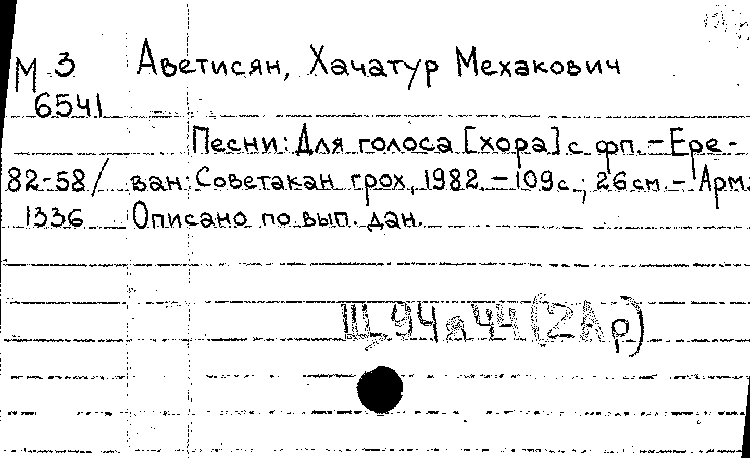 М 3 Аветисян, Хачатур Мехакович
6541
Песни: Для голоса [хора] с фп. - Ере-
82-58/ ван: Советакан грох, 1982. - 109 с.; 26 см. - Арм.
1336 Описано по вып. дан.
Щ94я44(2Ар)